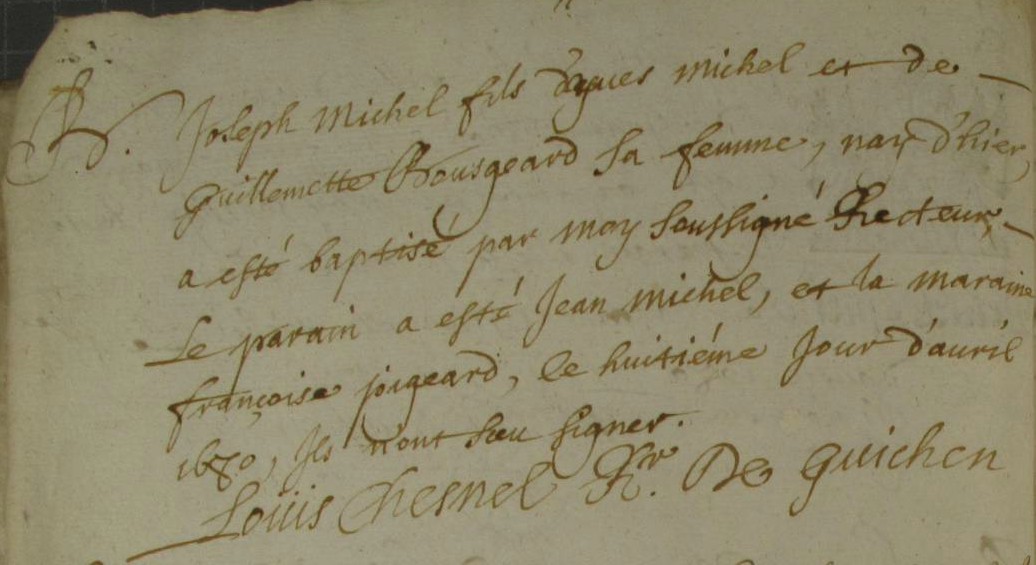 B. Joseph Michel fils d'yves Michel et de
Guillemette Bousgeard sa femme, nay d'hier,
a esté baptisé par moy soussigné Recteur,
Le parain a esté Jean Michel, et la maraine
françoise jougeard, le huitiéme Jour d'auril
1670, Ils n'ont sceu signer.
Loüis Chesnel Rr. De Guichen